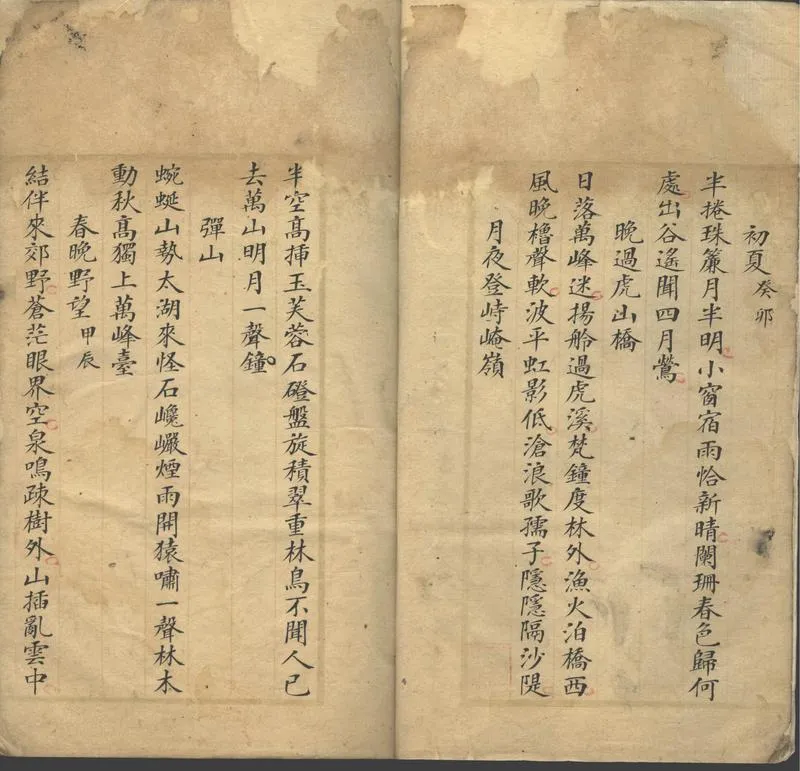 初夏 癸卯
半捲珠簾月半明小窗宿雨恰新晴闌珊春色歸何
處出谷遙聞四月鶯
晚過虎山橋
日落萬峰迷揚舲過虎溪梵鐘度林外漁火泊橋西
風晚櫓聲軟波平虹影低滄浪歌孺子隱隱隔沙隄
月夜登峙崦嶺
半空高挿玉芙蓉石磴盤旋積翠重林鳥不聞人已
去萬山明月一聲鐘
彈山
蜿蜒山勢太湖來怪石巉巖煙雨開猿嘯一聲林木
動秋高獨上萬峰臺
春晚野望 甲辰
結伴來郊野蒼茫眼界空泉鳴疎樹外山插亂雲中